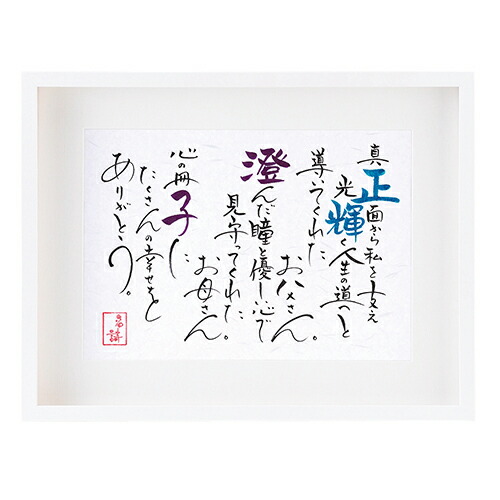 真正面から私を支え
光輝く人生の道へと
導いてくれた
お父さん。
澄んだ瞳と優しい心で
見守ってくれた
お母さん。
心の冊子に
たくさんの幸せを
ありがとう。